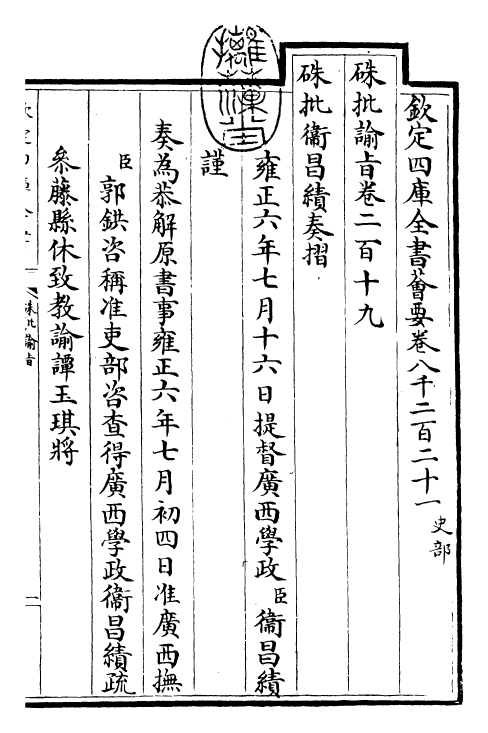 欽定四庫全書薈要卷八千二百二十一 史部
硃批諭旨卷二百十九
硃批衞昌績奏摺
雍正六年七月十六日提督廣西學政臣衞昌績
謹
奏為恭解原書事雍正六年七月初四日准廣西撫
臣郭鉷咨稱准吏部咨查得廣西學政衞昌績疏
叅藤縣休致教諭譚玉琪將
硃批諭旨
一